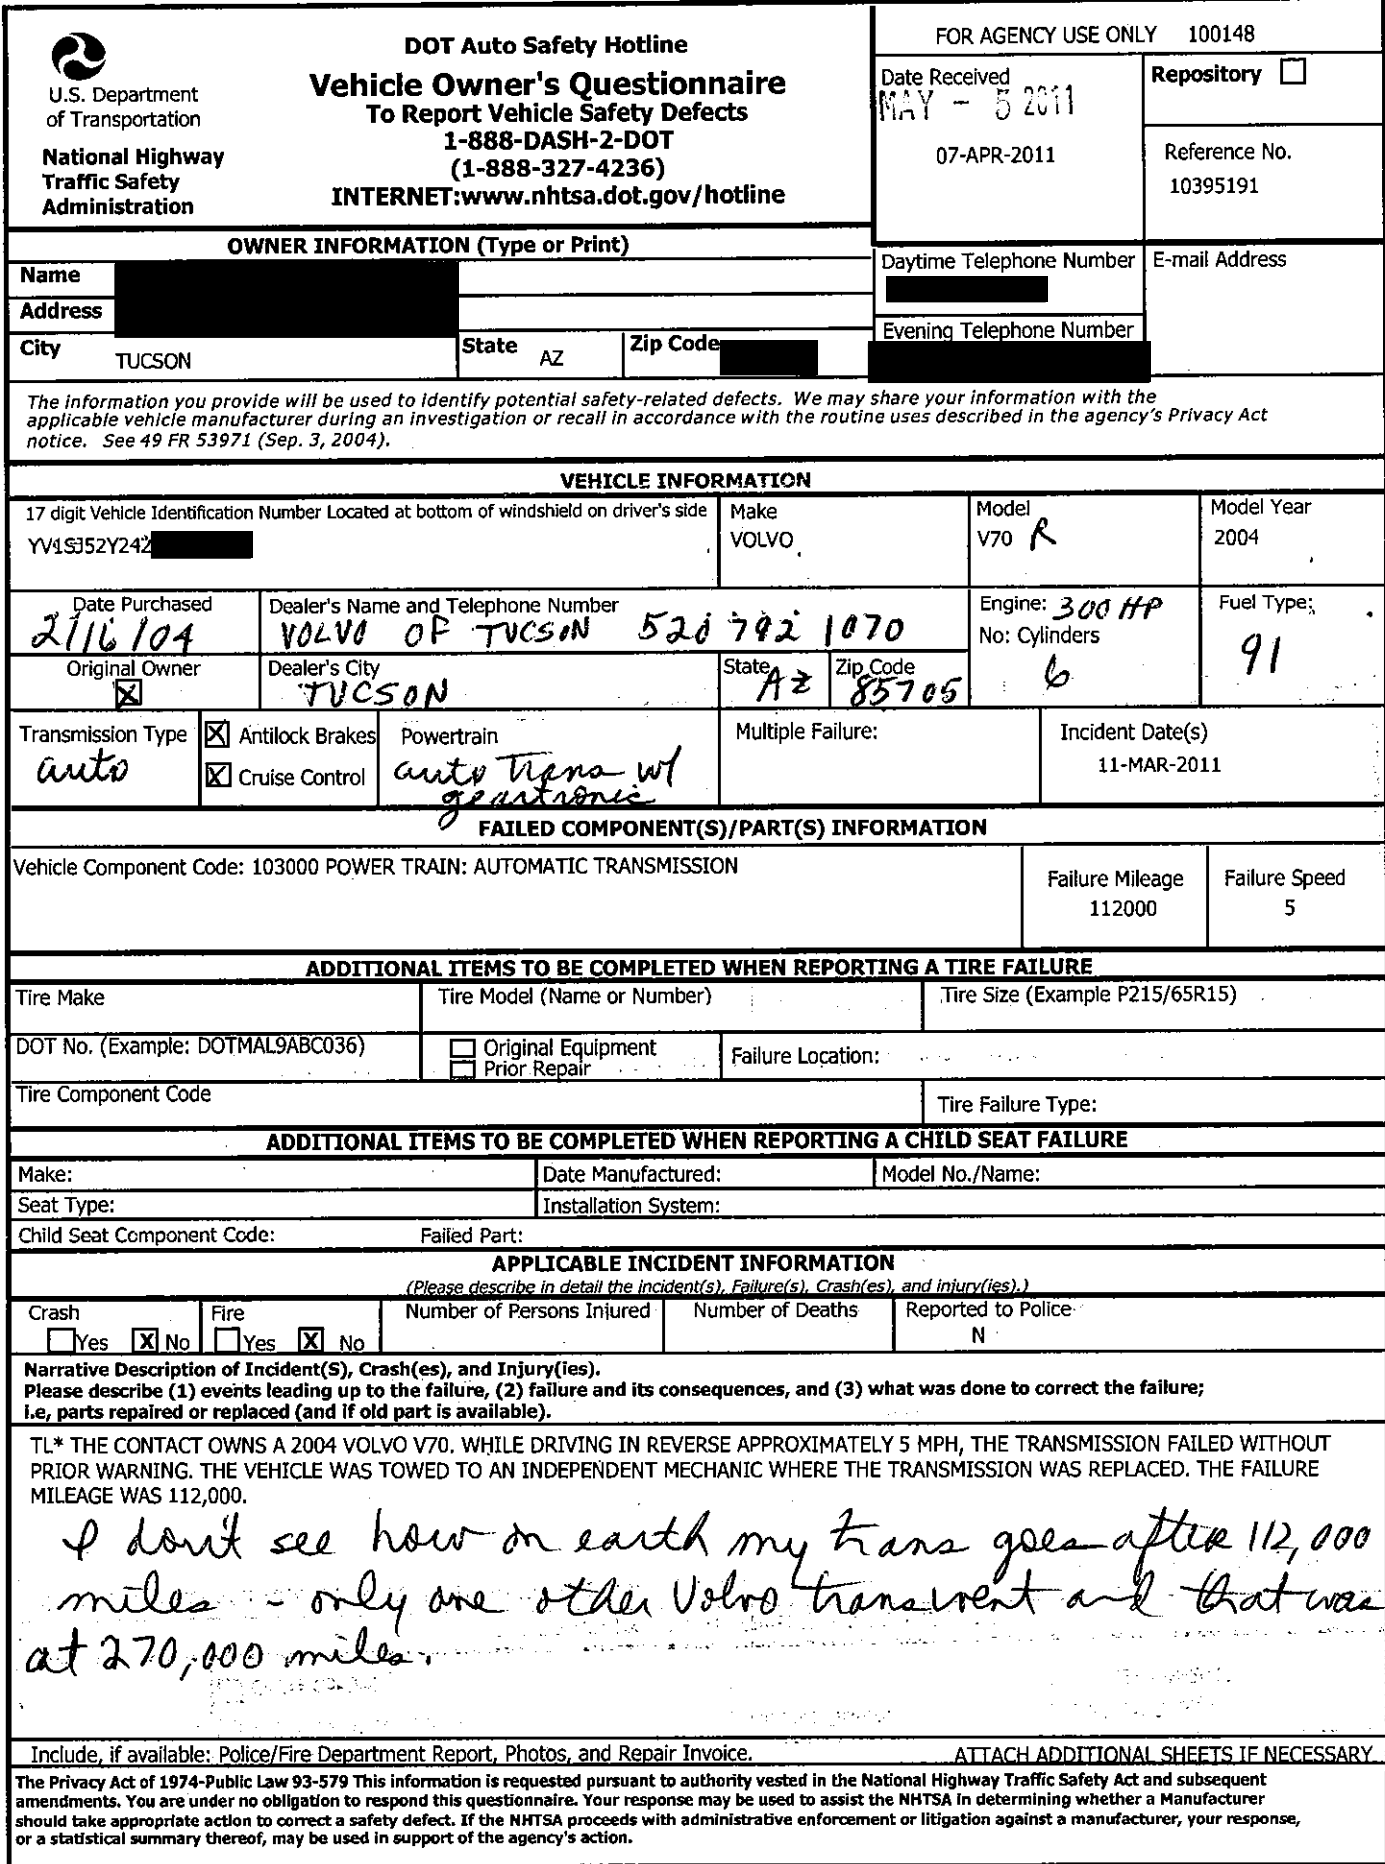 U.S. Department
of Transportation
National Highway
Traffic Safety
Administration
DOT Auto Safety Hotline
Vehicle Owner's Questionnaire
To Report Vehicle Safety Defects
1-888-DASH-2-DOT
(1-888-327-4236)
INTERNET:www.nhtsa.dot.gov/hotline
FOR AGENCY USE ONLY 100148
Date Received
MAY - 5 2011
07-APR-2011
Repository
Reference No.
10395191
OWNER INFORMATION (Type or Print)
Name
Address
City TUCSON
State AZ
Zip Code
Daytime Telephone Number
Evening Telephone Number
E-mail Address
The information you provide will be used to identify potential safety-related defects. We may share your information with the
applicable vehicle manufacturer during an investigation or recall in accordance with the routine uses described in the agency's Privacy Act
notice. See 49 FR 53971 (Sep. 3, 2004).
VEHICLE INFORMATION
17 digit Vehicle Identification Number Located at bottom of windshield on driver's side
YV1SJ52Y242
Make
VOLVO
Model
V70 R
Model Year
2004
Date Purchased
2/16/04
Dealer's Name and Telephone Number
VOLVO OF TUCSON 520 792 1070
Engine: 300 HP
No: Cylinders
6
Fuel Type:
91
Original Owner
X
Dealer's City
TUCSON
State
AZ
Zip Code
85705
Transmission Type
auto
X Antilock Brakes
X Cruise Control
Powertrain
auto trans w/
geartronic
Multiple Failure:
Incident Date(s)
11-MAR-2011
FAILED COMPONENT(S)/PART(S) INFORMATION
Vehicle Component Code: 103000 POWER TRAIN: AUTOMATIC TRANSMISSION
Failure Mileage
112000
Failure Speed
5
ADDITIONAL ITEMS TO BE COMPLETED WHEN REPORTING A TIRE FAILURE
Tire Make
Tire Model (Name or Number)
Tire Size (Example P215/65R15)
DOT No. (Example: DOTMAL9ABC036)
Original Equipment
Prior Repair
Failure Location:
Tire Component Code
Tire Failure Type:
ADDITIONAL ITEMS TO BE COMPLETED WHEN REPORTING A CHILD SEAT FAILURE
Make:
Date Manufactured:
Model No./Name:
Seat Type:
Installation System:
Child Seat Component Code:
Failed Part:
APPLICABLE INCIDENT INFORMATION
(Please describe in detail the incident(s), Failure(s), Crash(es), and injury(ies).)
Crash
Yes X No
Fire
Yes X No
Number of Persons Injured
Number of Deaths
Reported to Police
N
Narrative Description of Incident(S), Crash(es), and Injury(ies).
Please describe (1) events leading up to the failure, (2) failure and its consequences, and (3) what was done to correct the failure;
i.e, parts repaired or replaced (and if old part is available).
TL* THE CONTACT OWNS A 2004 VOLVO V70. WHILE DRIVING IN REVERSE APPROXIMATELY 5 MPH, THE TRANSMISSION FAILED WITHOUT
PRIOR WARNING. THE VEHICLE WAS TOWED TO AN INDEPENDENT MECHANIC WHERE THE TRANSMISSION WAS REPLACED. THE FAILURE
MILEAGE WAS 112,000.
I don't see how on earth my trans goes after 112,000
miles - only one other Volvo trans went and that was
at 270,000 miles.
Include, if available: Police/Fire Department Report, Photos, and Repair Invoice.
ATTACH ADDITIONAL SHEETS IF NECESSARY
The Privacy Act of 1974-Public Law 93-579 This information is requested pursuant to authority vested in the National Highway Traffic Safety Act and subsequent
amendments. You are under no obligation to respond this questionnaire. Your response may be used to assist the NHTSA in determining whether a Manufacturer
should take appropriate action to correct a safety defect. If the NHTSA proceeds with administrative enforcement or litigation against a manufacturer, your response,
or a statistical summary thereof, may be used in support of the agency's action.